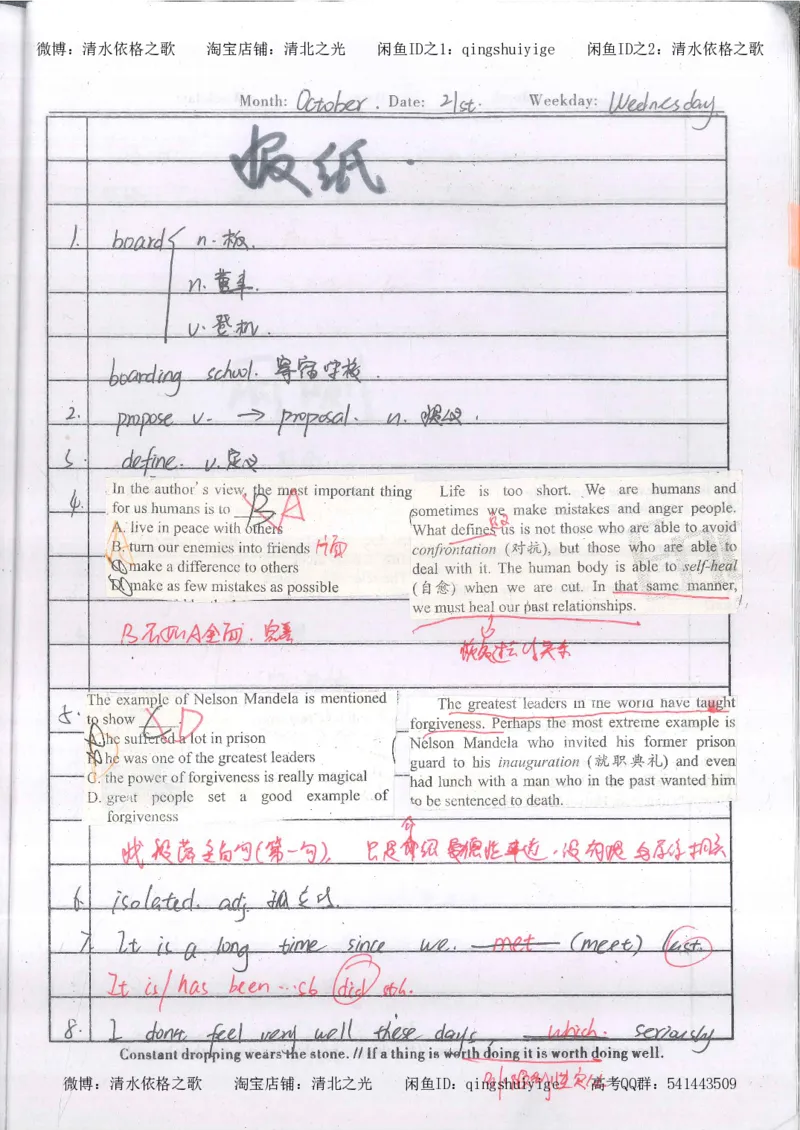 微博：清水依格之歌 淘宝店铺：清北之光 闲鱼ID之1：qingshuiyige 闲鱼ID之2：清水依格之歌
Month: October. Date: 21st. Weekday: Wednesday
报纸.
1. board n. 板.
n. 董事.
v. 登机.
boarding school. 寄宿学校.
2. propose v. → proposal. n. 提议.
3. define. v. 定义
4.
In the author's view, the most important thing
for us humans is to B A
A. live in peace with others
B. turn our enemies into friends 片面
C. make a difference to others
D. make as few mistakes as possible
Life is too short. We are humans and
sometimes we make mistakes and anger people.
What defines us is not those who are able to avoid
confrontation (对抗), but those who are able to
deal with it. The human body is able to self-heal
(自愈) when we are cut. In that same manner,
we must heal our past relationships.
B不如A全面，完善
恢复过去的关系
5.
The example of Nelson Mandela is mentioned
to show D
A. he suffered a lot in prison
B. he was one of the greatest leaders
C. the power of forgiveness is really magical
D. great people set a good example of
forgiveness
The greatest leaders in the world have taught
forgiveness. Perhaps the most extreme example is
Nelson Mandela who invited his former prison
guard to his inauguration (就职典礼) and even
had lunch with a man who in the past wanted him
to be sentenced to death.
找段落主旨句(第一句),
6. isolated. adj. 孤立的.
7. It is a long time since we met (meet) last.
It is/has been ... sb did sth.
8. I don't feel very well these days, which. seriously
Constant dropping wears the stone. // If a thing is worth doing it is worth doing well.
微博：清水依格之歌 淘宝店铺：清北之光 闲鱼ID：qingshuiyige 高考QQ群：541443509